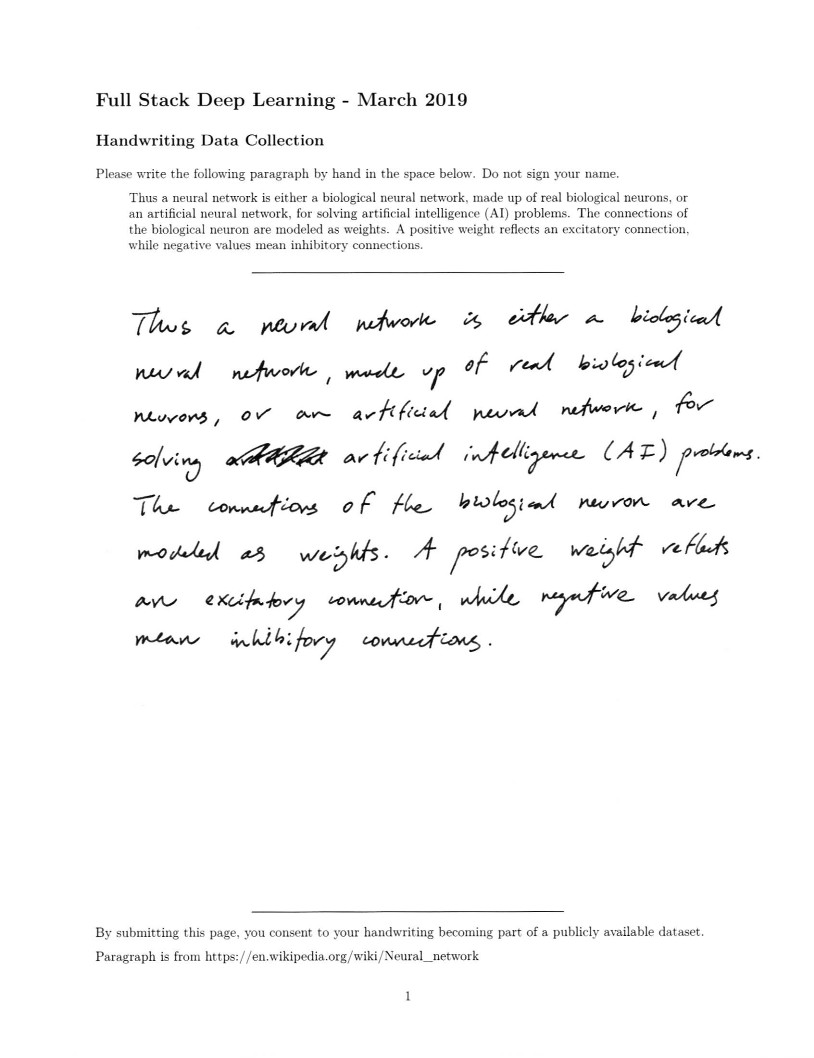 Full Stack Deep Learning - March 2019
Handwriting Data Collection
Please write the following paragraph by hand in the space below. Do not sign your name.
Thus a neural network is either a biological neural network, made up of real biological neurons, or
an artificial neural network, for solving artificial intelligence (AI) problems. The connections of
the biological neuron are modeled as weights. A positive weight reflects an excitatory connection,
while negative values mean inhibitory connections.
Thus a neural network is either a biological
neural network, made up of real biological
neurons, or an artificial neural network, for
solving artificial intelligence (AI) problems.
The connections of the biological neuron are
modeled as weights. A positive weight reflects
an excitatory connection, while negative values
mean inhibitory connections.
By submitting this page, you consent to your handwriting becoming part of a publicly available dataset.
Paragraph is from https://en.wikipedia.org/wiki/Neural_network
1